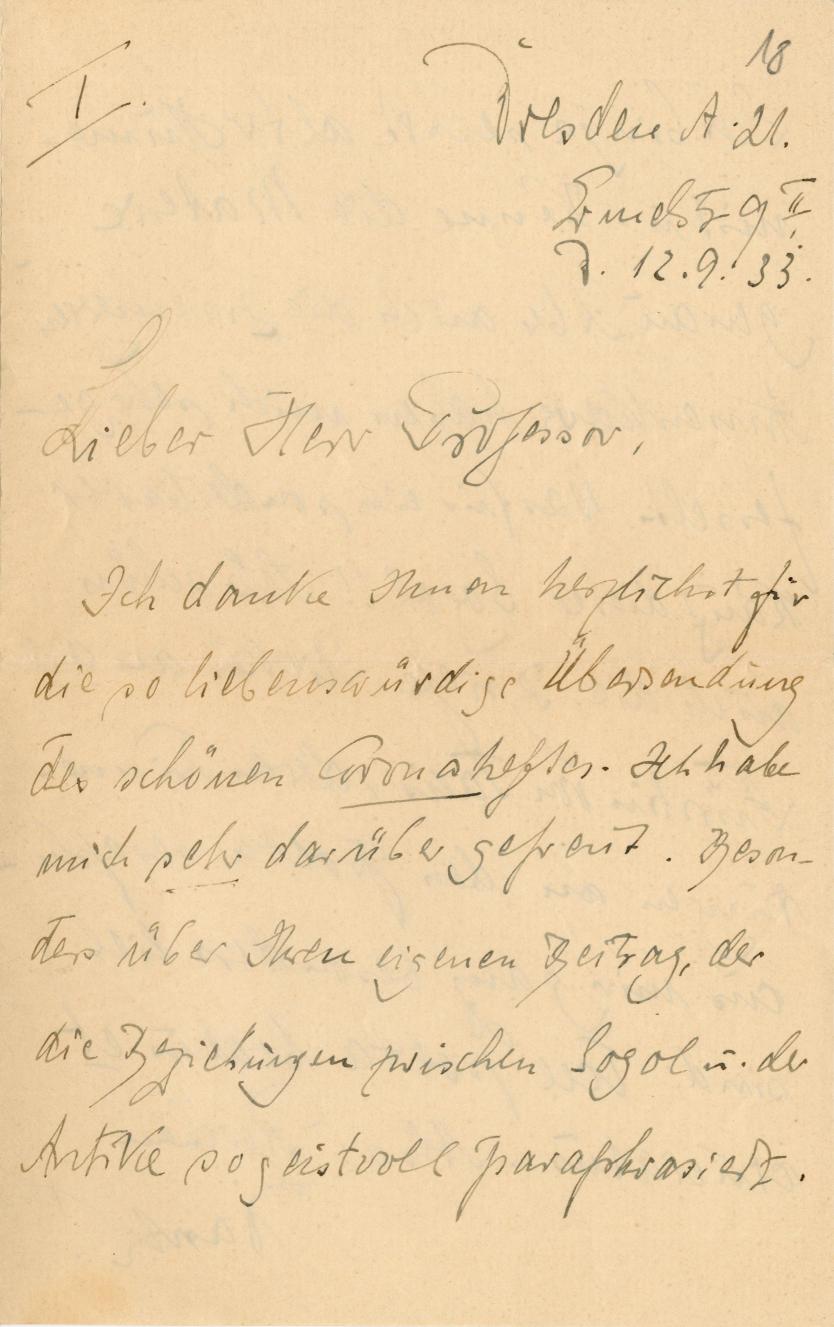 18
I.
Dresden A. 21.
9 II
d. 12.9.33.
Lieber Herr Professor,
Ich danke Ihnen herzlichst für
die so liebenswürdige Übersendung
des schönen Coronaheftes. Ich habe
mich sehr darüber gefreut. Beson-
ders über Ihren eigenen Beitrag, der
die Beziehungen zwischen Gogol u. der
Antike so geistvoll paraphrasiert.